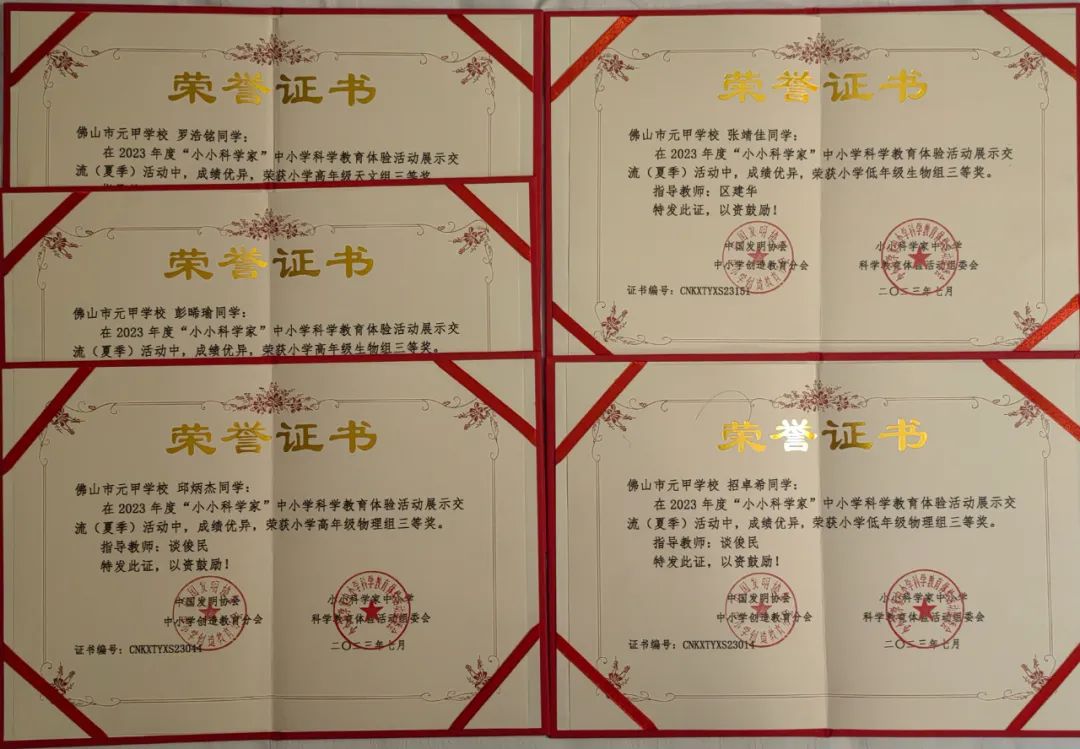 荣誉证书
佛山市元甲学校 罗浩铭同学：
在2023年度“小小科学家”中小学科学教育体验活动展示交
流（夏季）活动中，成绩优异，荣获小学高年级天文组三等奖
荣誉证书
佛山市元甲学校 彭晞瑜同学：
在2023年度“小小科学家”中小学科学教育体验活动展示交
流（夏季）活动中，成绩优异，荣获小学高年级生物组三等奖。
荣誉证书
佛山市元甲学校 邱炳杰同学：
在2023年度“小小科学家”中小学科学教育体验活动展示交
流（夏季）活动中，成绩优异，荣获小学高年级物理组三等奖。
指导教师：谈俊民
特发此证，以资鼓励！
中国发明协会 小小科学家中小学
中小学创造教育分会 科学教育体验活动组委会
证书编号：CNKXTYXS23044 二〇二三年七月
荣誉证书
佛山市元甲学校 张靖佳同学：
在2023年度“小小科学家”中小学科学教育体验活动展示交
流（夏季）活动中，成绩优异，荣获小学低年级生物组三等奖。
指导教师：区建华
特发此证，以资鼓励！
中国发明协会 小小科学家中小学
中小学创造教育分会 科学教育体验活动组委会
证书编号：CNKXTYXS23151 二〇二三年七月
荣誉证书
佛山市元甲学校 招卓希同学：
在2023年度“小小科学家”中小学科学教育体验活动展示交
流（夏季）活动中，成绩优异，荣获小学低年级物理组三等奖。
指导教师：谈俊民
特发此证，以资鼓励！
中国发明协会 小小科学家中小学
中小学创造教育分会 科学教育体验活动组委会
证书编号：CNKXTYXS23014 二〇二三年七月